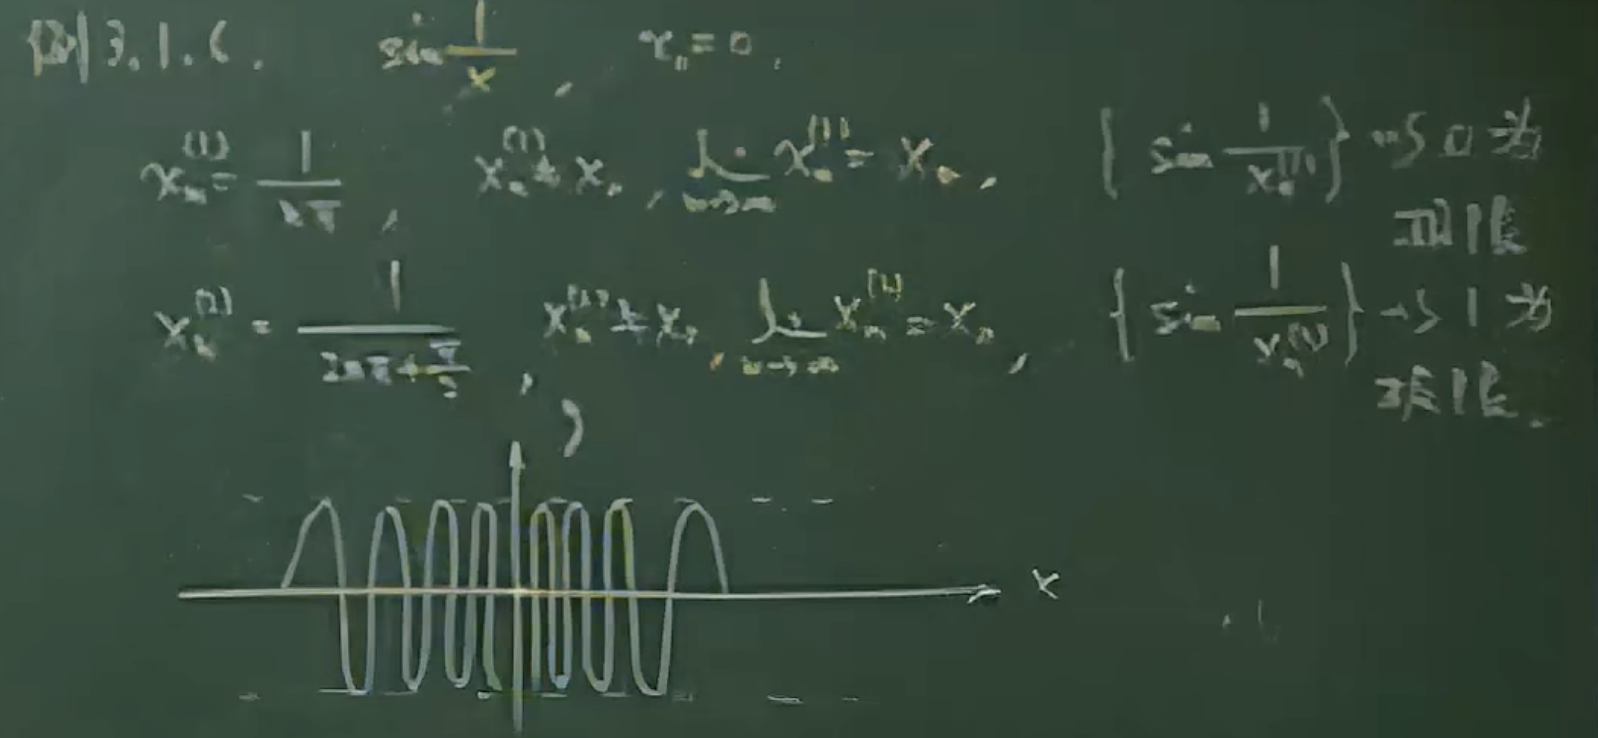 例3.1.6. sin 1/x, x₀=0.
xₙ⁽¹⁾ = 1/nπ, xₙ⁽¹⁾ ≠ x₀, lim n→∞ xₙ⁽¹⁾ = x₀, {sin 1/xₙ⁽¹⁾} 以 0 为
极限
xₙ⁽²⁾ = 1/(2nπ+π/2), xₙ⁽²⁾ ≠ x₀, lim n→∞ xₙ⁽²⁾ = x₀, {sin 1/xₙ⁽²⁾} 以 1 为
极限.
x